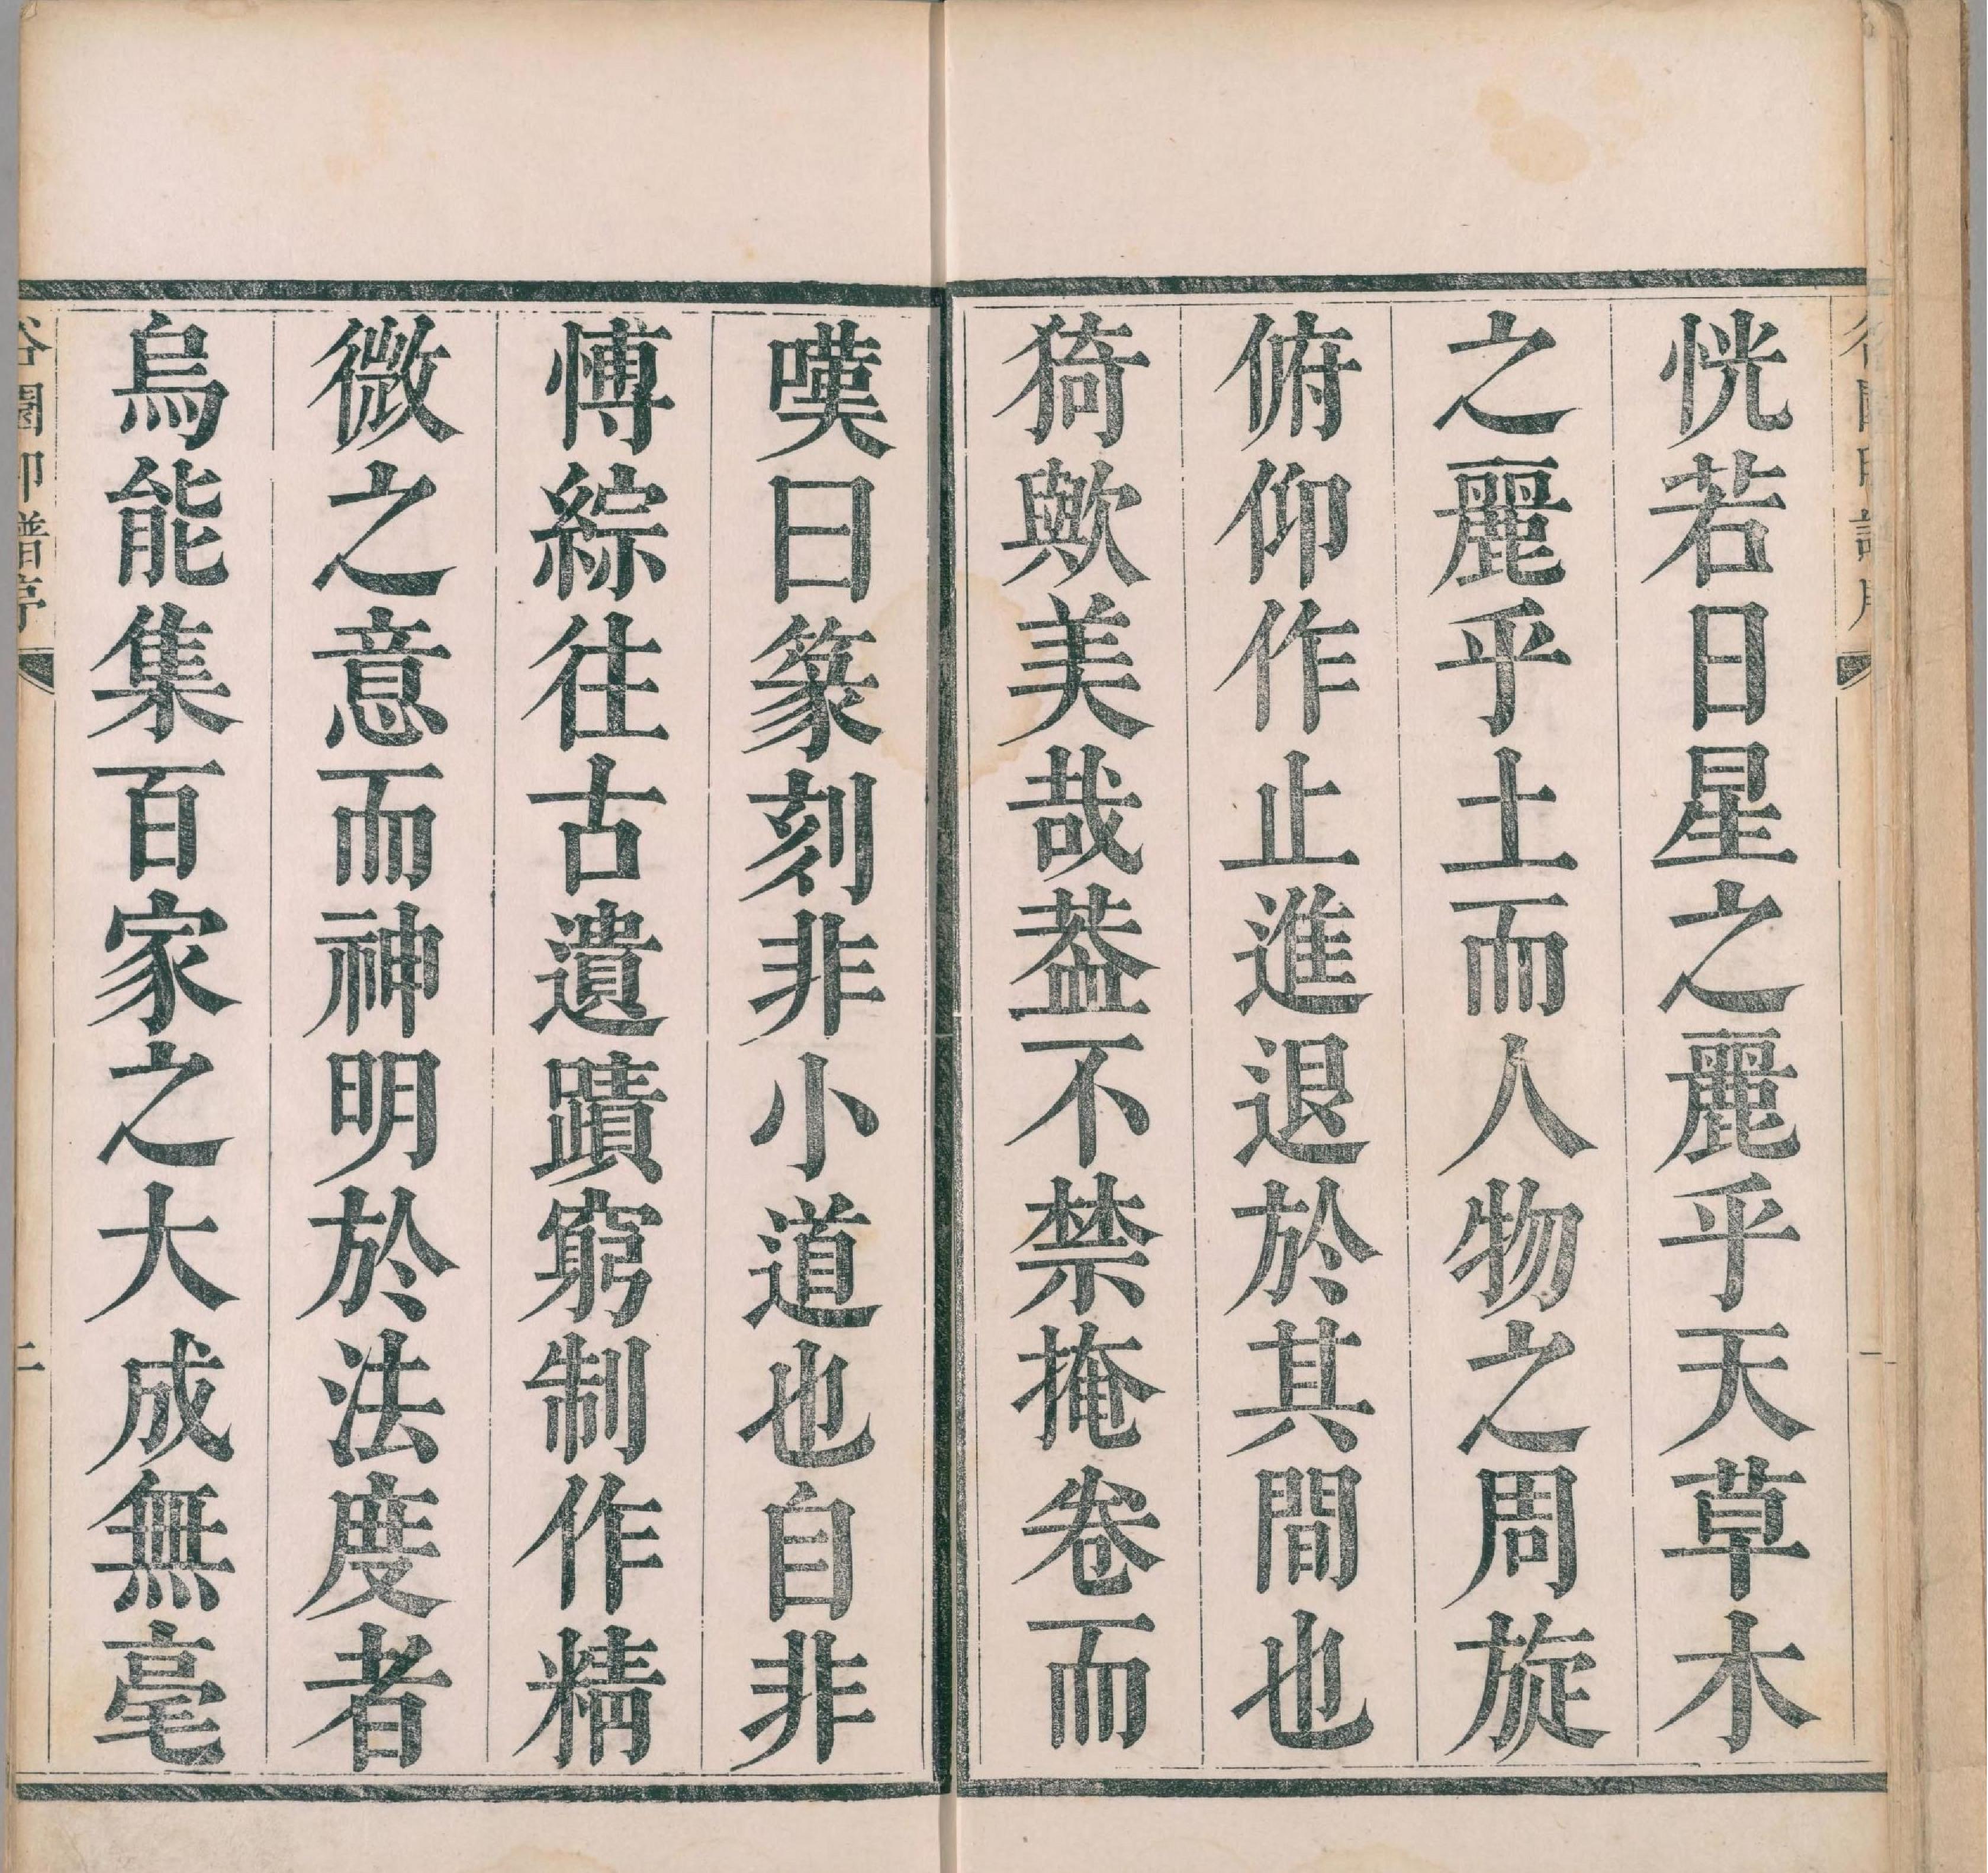 恍若日星之麗乎天草木
之麗乎土而人物之周旋
俯仰作止進退於其間也
猗歟美哉葢不禁掩卷而
嘆曰篆刻非小道也自非
愽綜往古遺蹟窮制作精
微之意而神明於法度者
烏能集百家之大成無毫
谷園印譜序
二